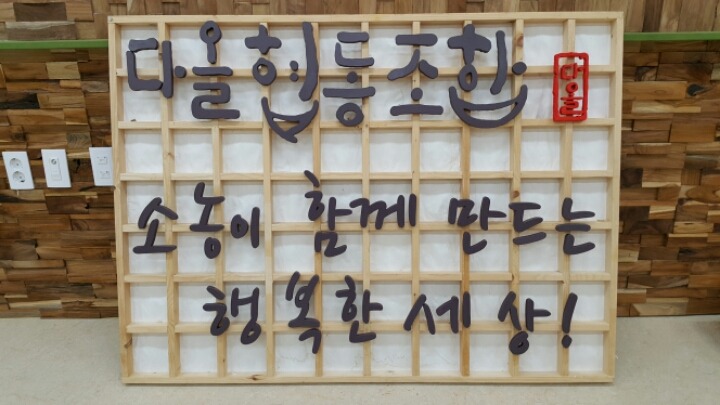 다올협동조합 다올
소농이 함께 만드는
행복한 세상!